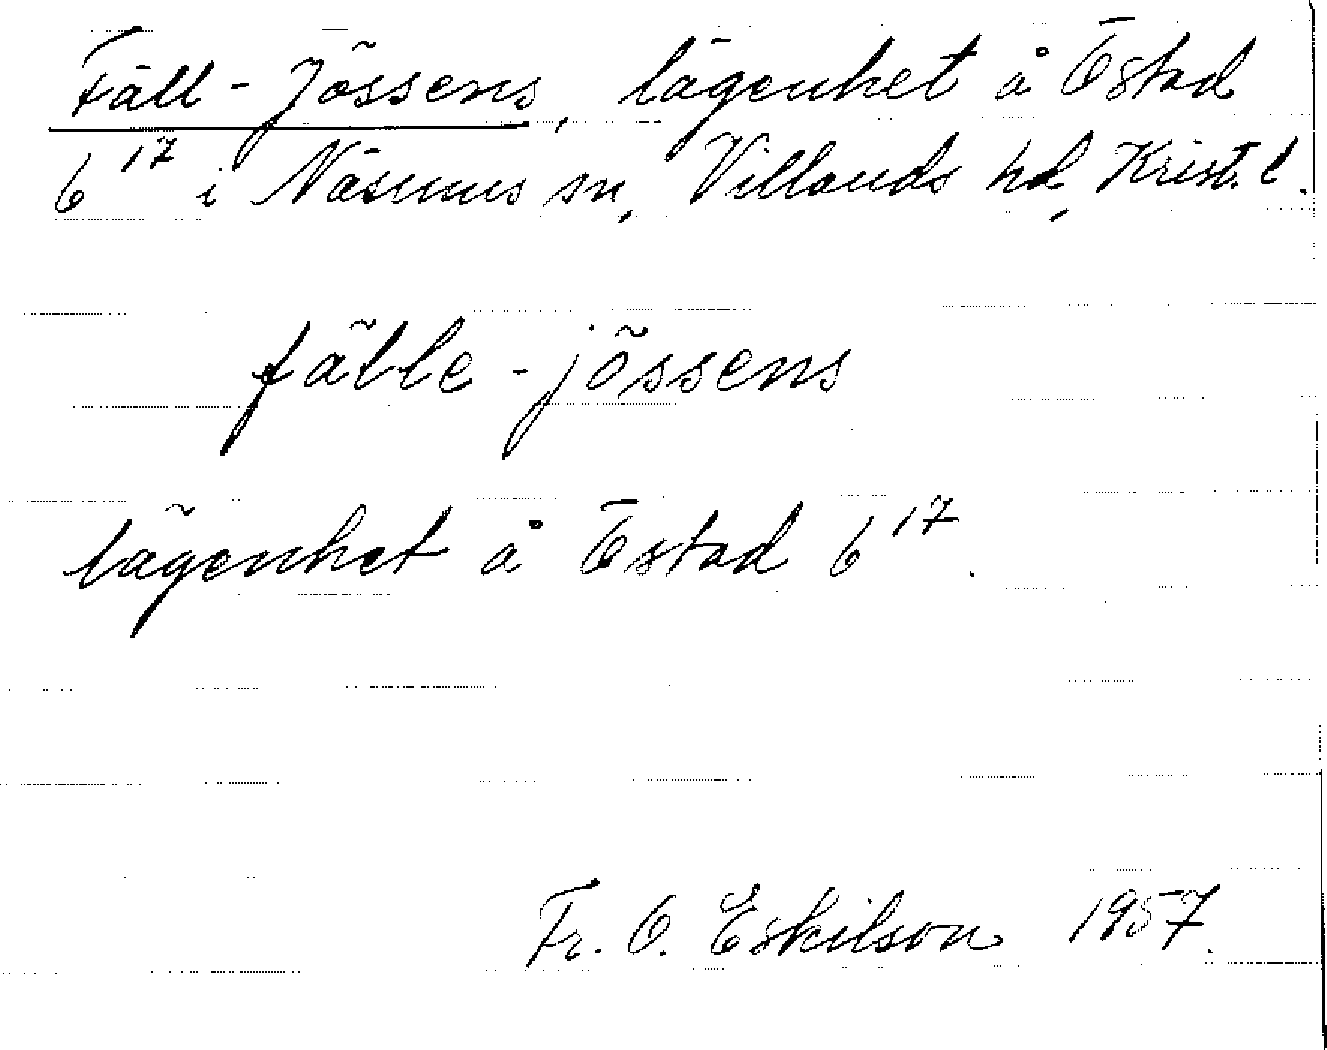 Fäll-Jössens, lägenhet å Östad
6 17 i Näsums sn, Villands hd, Krist. l.
fälle-jössens
lägenhet å Östad 6 17.
Fr. O. Eskilson 1957.